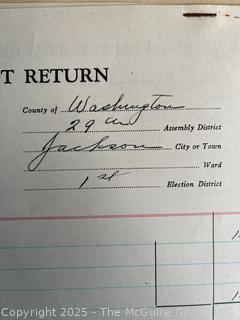 T RETURN
County of Washington
29 Assembly District
Jackson City or Town
Ward
1st Election District
Copyright 2025 - The McGuire Group